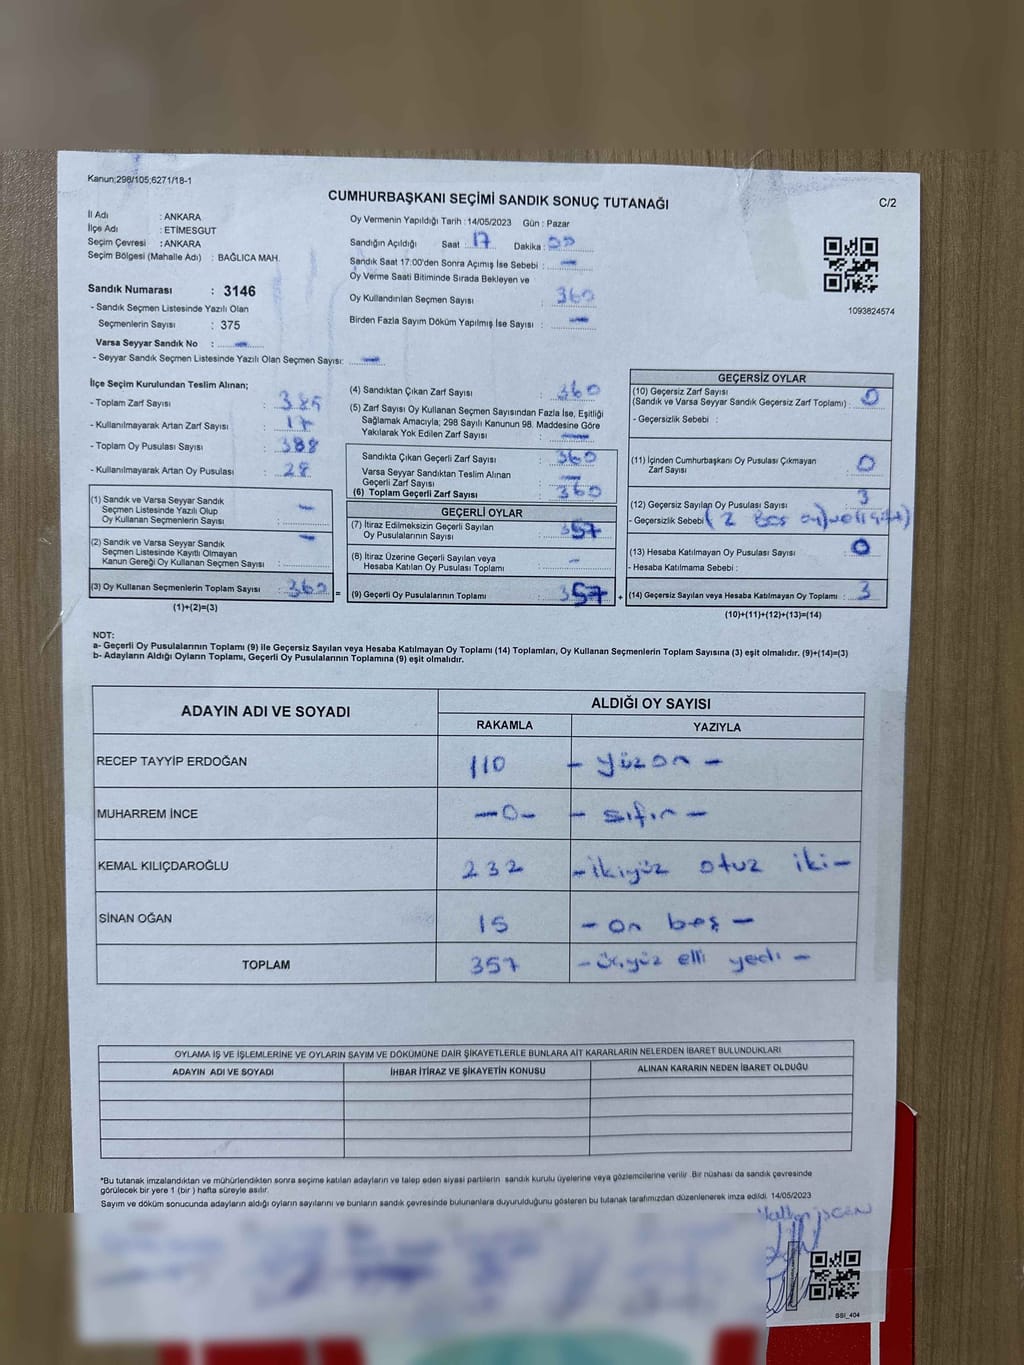 Kanun;298/105;6271/18-1
CUMHURBAŞKANI SEÇİMİ SANDIK SONUÇ TUTANAĞI
C/2
İl Adı : ANKARA
İlçe Adı : ETİMESGUT
Seçim Çevresi : ANKARA
Seçim Bölgesi (Mahalle Adı) : BAĞLICA MAH.
Sandık Numarası : 3146
- Sandık Seçmen Listesinde Yazılı Olan
Seçmenlerin Sayısı : 375
Varsa Seyyar Sandık No : —
- Seyyar Sandık Seçmen Listesinde Yazılı Olan Seçmen Sayısı: —
Oy Vermenin Yapıldığı Tarih : 14/05/2023 Gün : Pazar
Sandığın Açıldığı Saat : 17 Dakika : 00
Sandık Saat 17:00'den Sonra Açımış İse Sebebi : —
Oy Verme Saati Bitiminde Sırada Bekleyen ve
Oy Kullandırılan Seçmen Sayısı 360
Birden Fazla Sayım Döküm Yapılmış İse Sayısı : —
1093824574
İlçe Seçim Kurulundan Teslim Alınan;
- Toplam Zarf Sayısı : 385
- Kullanılmayarak Artan Zarf Sayısı : 17
- Toplam Oy Pusulası Sayısı : 388
- Kullanılmayarak Artan Oy Pusulası : 28
(1) Sandık ve Varsa Seyyar Sandık
Seçmen Listesinde Yazılı Olup
Oy Kullanan Seçmenlerin Sayısı : —
(2) Sandık ve Varsa Seyyar Sandık
Seçmen Listesinde Kayıtlı Olmayan
Kanun Gereği Oy Kullanan Seçmen Sayısı : —
(3) Oy Kullanan Seçmenlerin Toplam Sayısı : 360 =
(1)+(2)=(3)
(4) Sandıktan Çıkan Zarf Sayısı : 360
(5) Zarf Sayısı Oy Kullanan Seçmen Sayısından Fazla İse, Eşitliği
Sağlamak Amacıyla; 298 Sayılı Kanunun 98. Maddesine Göre
Yakılarak Yok Edilen Zarf Sayısı : —
Sandıkta Çıkan Geçerli Zarf Sayısı : 360
Varsa Seyyar Sandıktan Teslim Alınan
Geçerli Zarf Sayısı : —
(6) Toplam Geçerli Zarf Sayısı : 360
GEÇERLİ OYLAR
(7) İtiraz Edilmeksizin Geçerli Sayılan
Oy Pusulalarının Sayısı : 357
(8) İtiraz Üzerine Geçerli Sayılan veya
Hesaba Katılan Oy Pusulası Toplamı : —
(9) Geçerli Oy Pusulalarının Toplamı : 357 +
GEÇERSİZ OYLAR
(10) Geçersiz Zarf Sayısı
(Sandık ve Varsa Seyyar Sandık Geçersiz Zarf Toplamı) : 0
- Geçersizlik Sebebi :
(11) İçinden Cumhurbaşkanı Oy Pusulası Çıkmayan
Zarf Sayısı : 0
(12) Geçersiz Sayılan Oy Pusulası Sayısı : 3
- Geçersizlik Sebebi ( 2 Boş oy)
(13) Hesaba Katılmayan Oy Pusulası Sayısı : 0
- Hesaba Katılmama Sebebi :
(14) Geçersiz Sayılan veya Hesaba Katılmayan Oy Toplamı : 3
(10)+(11)+(12)+(13)=(14)
NOT:
a- Geçerli Oy Pusulalarının Toplamı (9) ile Geçersiz Sayılan veya Hesaba Katılmayan Oy Toplamı (14) Toplamları, Oy Kullanan Seçmenlerin Toplam Sayısına (3) eşit olmalıdır. (9)+(14)=(3)
b- Adayların Aldığı Oyların Toplamı, Geçerli Oy Pusulalarının Toplamına (9) eşit olmalıdır.
ADAYIN ADI VE SOYADI
ALDIĞI OY SAYISI
RAKAMLA YAZIYLA
RECEP TAYYİP ERDOĞAN 110 — yüzon —
MUHARREM İNCE —0— — sıfır —
KEMAL KILIÇDAROĞLU 232 — ikiyüz otuz iki —
SİNAN OĞAN 15 — on beş —
TOPLAM 357 — üçyüz elli yedi —
OYLAMA İŞ VE İŞLEMLERİNE VE OYLARIN SAYIM VE DÖKÜMÜNE DAİR ŞİKAYETLERLE BUNLARA AİT KARARLARIN NELERDEN İBARET BULUNDUKLARI
ADAYIN ADI VE SOYADI İHBAR İTİRAZ VE ŞİKAYETİN KONUSU ALINAN KARARIN NEDEN İBARET OLDUĞU
*Bu tutanak imzalandıktan ve mühürlendikten sonra seçime katılan adayların ve talep eden siyasi partilerin sandık kurulu üyelerine veya gözlemcilerine verilir. Bir nüshası da sandık çevresinde
görülecek bir yere 1 (bir ) hafta süreyle asılır.
Sayım ve döküm sonucunda adayların aldığı oyların sayılarını ve bunların sandık çevresinde bulunanlara duyurulduğunu gösteren bu tutanak tarafımızdan düzenlenerek imza edildi. 14/05/2023
SSI_404